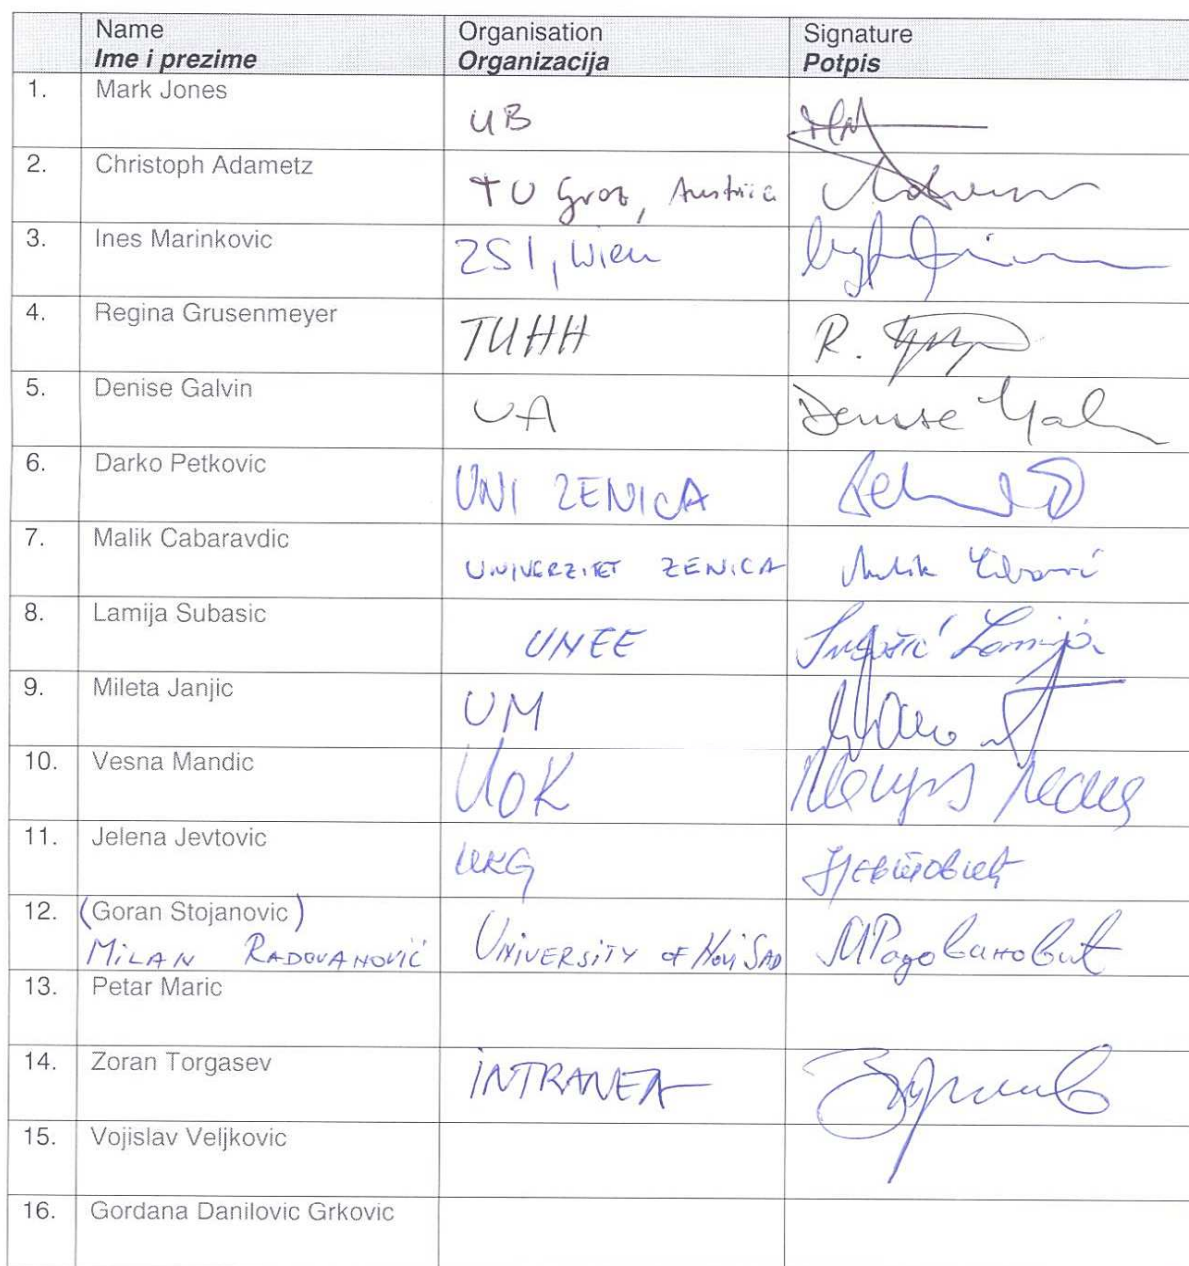 Name Organisation Signature
Ime i prezime Organizacija Potpis
1. Mark Jones UB
2. Christoph Adametz TU Graz, Austria
3. Ines Marinkovic ZSI, Wien
4. Regina Grusenmeyer TUHH R.
5. Denise Galvin UA Denise Gal
6. Darko Petkovic UNI ZENICA
7. Malik Cabaravdic UNIVERZITET ZENICA Malik
8. Lamija Subasic UNEE Subašić Lamija
9. Mileta Janjic UM
10. Vesna Mandic UoK
11. Jelena Jevtovic UKG Јевтовић
12. (Goran Stojanovic)
MILAN RADOVANOVIĆ UNIVERSITY OF NOVI SAD МРадовановић
13. Petar Maric
14. Zoran Torgasev INTRANEA
15. Vojislav Veljkovic
16. Gordana Danilovic Grkovic